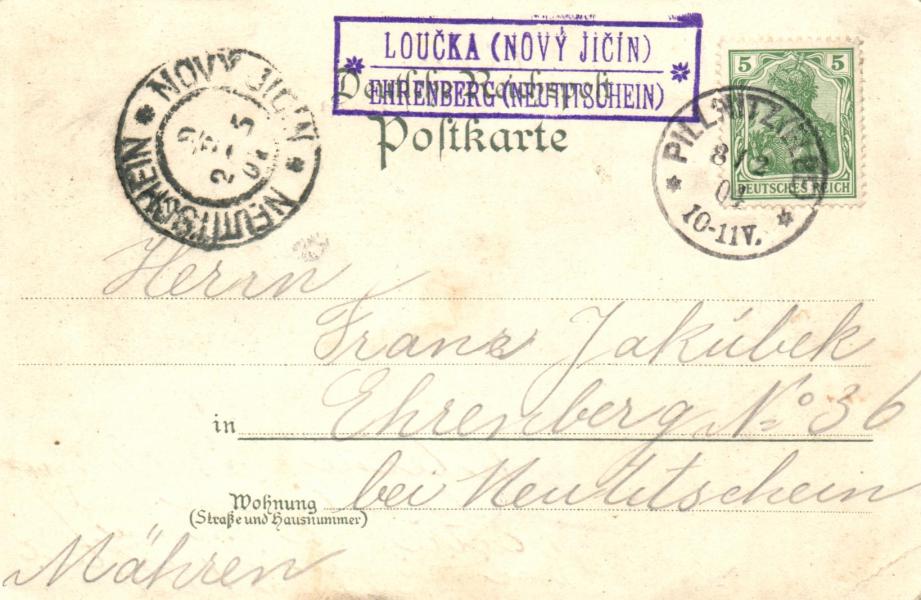 LOUČKA (NOVÝ JIČÍN)
EHRENBERG (NEUTITSCHEIN)
Deutsche Reichspost
Postkarte
NOVÝ JIČÍN
NEUTITSCHEIN
5 5
DEUTSCHES REICH
PILLNITZ (ELBE)
8/2
04
10-11V.
Herrn
Franz Jakúbek
in Ehrenberg No 36
Wohnung bei Neutitschein
(Straße und Hausnummer)
Mähren